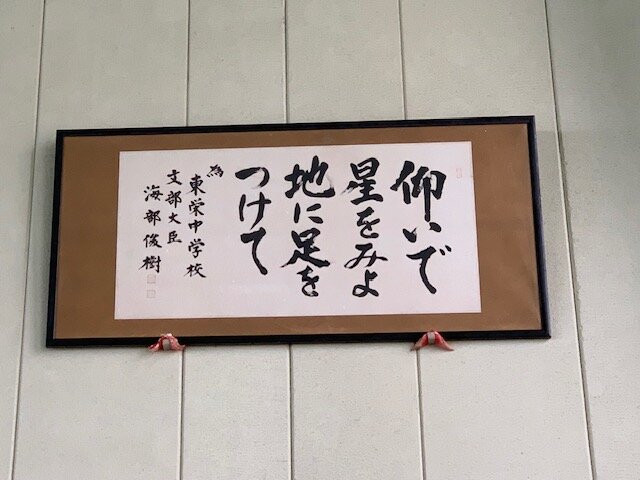 仰いで
星をみよ
地に足を
つけて
為 東栄中学校
文部大臣
海部俊樹